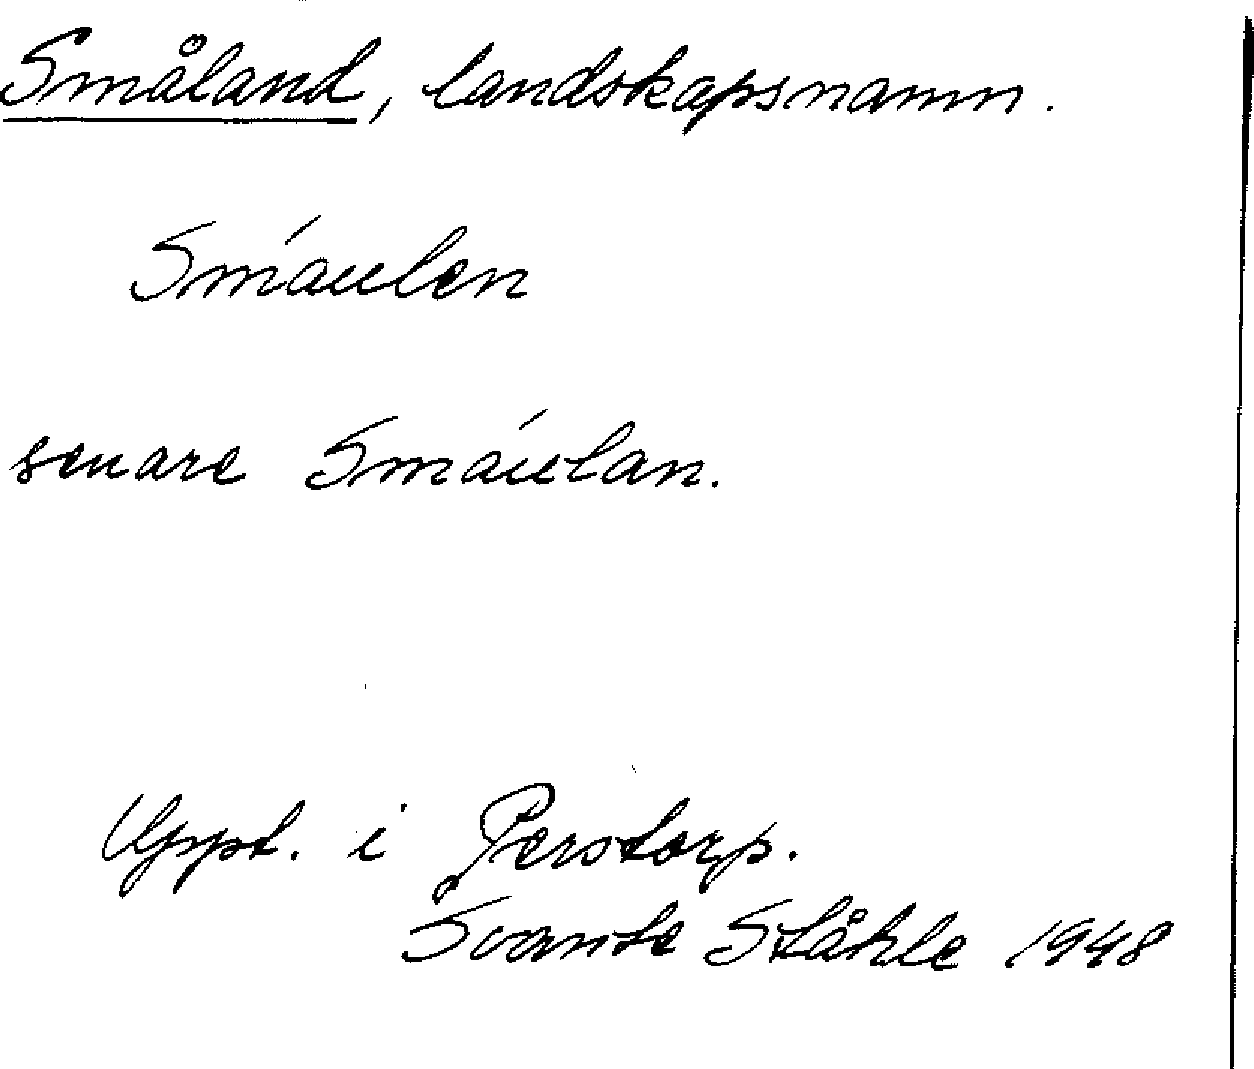 Småland, landskapsnamn.
Smáulen
senare Smáulan.
Uppt. i Perstorp.
Svante Ståhle 1948